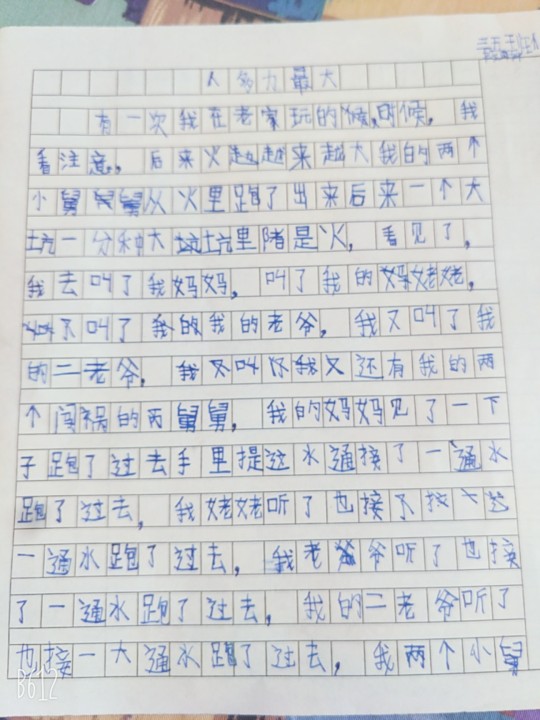 人多力最大
有一次我在老家玩的候,时候,我
看注意。后来火越越来越大我的两个
小舅舅从火里跑了出来后来一个大
坑一分种大坑里睹是火,看见了,
我去叫了我妈妈,叫了我的姥姥,
不叫了我的我的老爷,我又叫了我
的二老爷,我不叫还我又还有我的两
个闯祸的两舅舅,我的妈妈见了一下
子跑了过去手里提这水通接了一通水
跑了过去,我姥姥听了也接不接
一通水跑了过去,我老爷听了也接
了一通水跑了过去,我的二老爷听了
也接一大通水跑了过去,我两个小舅
B612